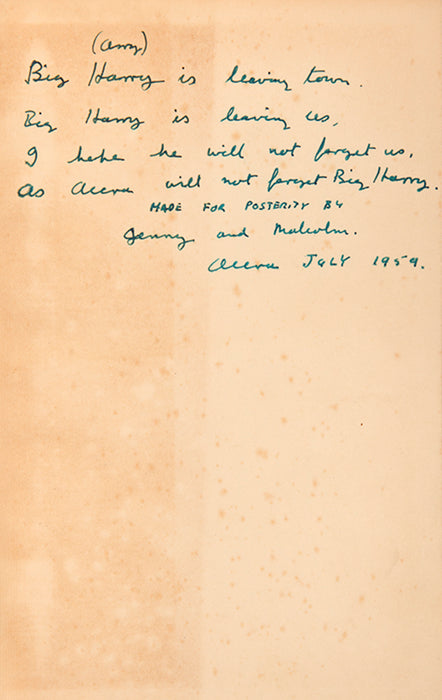 (Army)
Big Harry is leaving town.
Big Harry is leaving us,
I hope he will not forget us,
as Accra will not forget Big Harry.
MADE FOR POSTERITY BY
Jenny and Malcolm.
Accra JULY 1959.